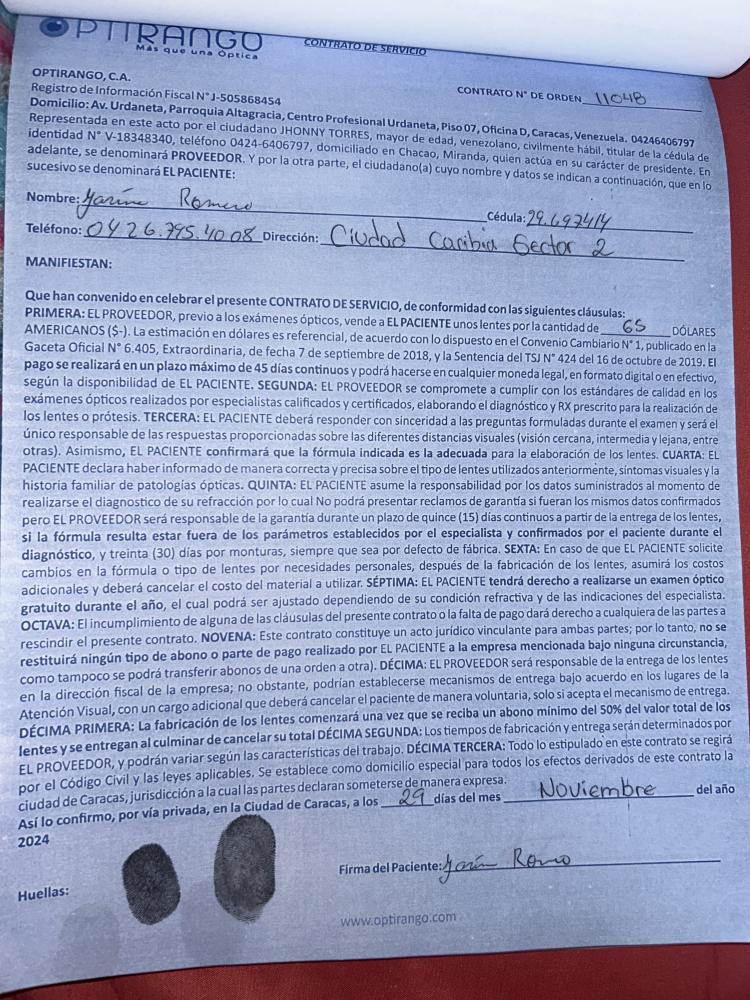 OPTIRANGO
Más que una Óptica
CONTRATO DE SERVICIO
OPTIRANGO, C.A.
CONTRATO N° DE ORDEN 11048
Registro de Información Fiscal N° J-505868454
Domicilio: Av. Urdaneta, Parroquia Altagracia, Centro Profesional Urdaneta, Piso 07, Oficina D, Caracas, Venezuela. 04246406797
Representada en este acto por el ciudadano JHONNY TORRES, mayor de edad, venezolano, civilmente hábil, titular de la cédula de
identidad N° V-18348340, teléfono 0424-6406797, domiciliado en Chacao, Miranda, quien actúa en su carácter de presidente. En
adelante, se denominará PROVEEDOR. Y por la otra parte, el ciudadano(a) cuyo nombre y datos se indican a continuación, que en lo
sucesivo se denominará EL PACIENTE:
Nombre: Romero Cédula: 29.697414
Teléfono: 0426.795.4008 Dirección: Ciudad Caribia Sector 2
MANIFIESTAN:
Que han convenido en celebrar el presente CONTRATO DE SERVICIO, de conformidad con las siguientes cláusulas:
PRIMERA: EL PROVEEDOR, previo a los exámenes ópticos, vende a EL PACIENTE unos lentes por la cantidad de 65 DÓLARES
AMERICANOS ($-). La estimación en dólares es referencial, de acuerdo con lo dispuesto en el Convenio Cambiario N° 1, publicado en la
Gaceta Oficial N° 6.405, Extraordinaria, de fecha 7 de septiembre de 2018, y la Sentencia del TSJ N° 424 del 16 de octubre de 2019. El
pago se realizará en un plazo máximo de 45 días continuos y podrá hacerse en cualquier moneda legal, en formato digital o en efectivo,
según la disponibilidad de EL PACIENTE. SEGUNDA: EL PROVEEDOR se compromete a cumplir con los estándares de calidad en los
exámenes ópticos realizados por especialistas calificados y certificados, elaborando el diagnóstico y RX prescrito para la realización de
los lentes o prótesis. TERCERA: EL PACIENTE deberá responder con sinceridad a las preguntas formuladas durante el examen y será el
único responsable de las respuestas proporcionadas sobre las diferentes distancias visuales (visión cercana, intermedia y lejana, entre
otras). Asimismo, EL PACIENTE confirmará que la fórmula indicada es la adecuada para la elaboración de los lentes. CUARTA: EL
PACIENTE declara haber informado de manera correcta y precisa sobre el tipo de lentes utilizados anteriormente, síntomas visuales y la
historia familiar de patologías ópticas. QUINTA: EL PACIENTE asume la responsabilidad por los datos suministrados al momento de
realizarse el diagnostico de su refracción por lo cual No podrá presentar reclamos de garantía si fueran los mismos datos confirmados
pero EL PROVEEDOR será responsable de la garantía durante un plazo de quince (15) días continuos a partir de la entrega de los lentes,
si la fórmula resulta estar fuera de los parámetros establecidos por el especialista y confirmados por el paciente durante el
diagnóstico, y treinta (30) días por monturas, siempre que sea por defecto de fábrica. SEXTA: En caso de que EL PACIENTE solicite
cambios en la fórmula o tipo de lentes por necesidades personales, después de la fabricación de los lentes, asumirá los costos
adicionales y deberá cancelar el costo del material a utilizar. SÉPTIMA: EL PACIENTE tendrá derecho a realizarse un examen óptico
gratuito durante el año, el cual podrá ser ajustado dependiendo de su condición refractiva y de las indicaciones del especialista.
OCTAVA: El incumplimiento de alguna de las cláusulas del presente contrato o la falta de pago dará derecho a cualquiera de las partes a
rescindir el presente contrato. NOVENA: Este contrato constituye un acto jurídico vinculante para ambas partes; por lo tanto, no se
restituirá ningún tipo de abono o parte de pago realizado por EL PACIENTE a la empresa mencionada bajo ninguna circunstancia,
como tampoco se podrá transferir abonos de una orden a otra). DÉCIMA: EL PROVEEDOR será responsable de la entrega de los lentes
en la dirección fiscal de la empresa; no obstante, podrían establecerse mecanismos de entrega bajo acuerdo en los lugares de la
Atención Visual, con un cargo adicional que deberá cancelar el paciente de manera voluntaria, solo si acepta el mecanismo de entrega.
DÉCIMA PRIMERA: La fabricación de los lentes comenzará una vez que se reciba un abono mínimo del 50% del valor total de los
lentes y se entregan al culminar de cancelar su total DÉCIMA SEGUNDA: Los tiempos de fabricación y entrega serán determinados por
EL PROVEEDOR, y podrán variar según las características del trabajo. DÉCIMA TERCERA: Todo lo estipulado en este contrato se regirá
por el Código Civil y las leyes aplicables. Se establece como domicilio especial para todos los efectos derivados de este contrato la
ciudad de Caracas, jurisdicción a la cual las partes declaran someterse de manera expresa.
Así lo confirmo, por vía privada, en la Ciudad de Caracas, a los 29 días del mes Noviembre del año
2024
Firma del Paciente:
Huellas:
www.optirango.com